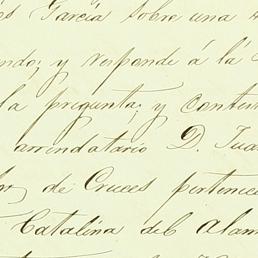 García sobre una
ndo; y responde á la
la pregunta; y conten
arrendatario D. Jua
de Cruces pertenec
Catalina del Alam